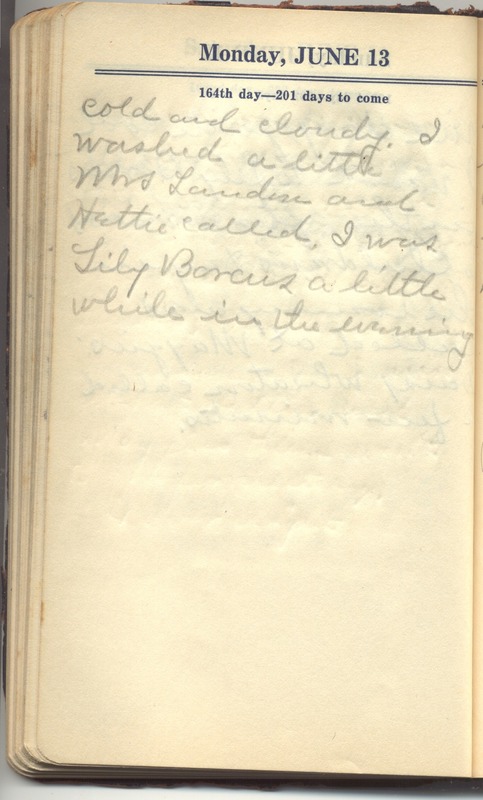 Monday, JUNE 13
164th day—201 days to come
cold and cloudy. I
washed a little
Mrs Landon and
Hattie called, I was
Lily Borcus a little
while in the evening